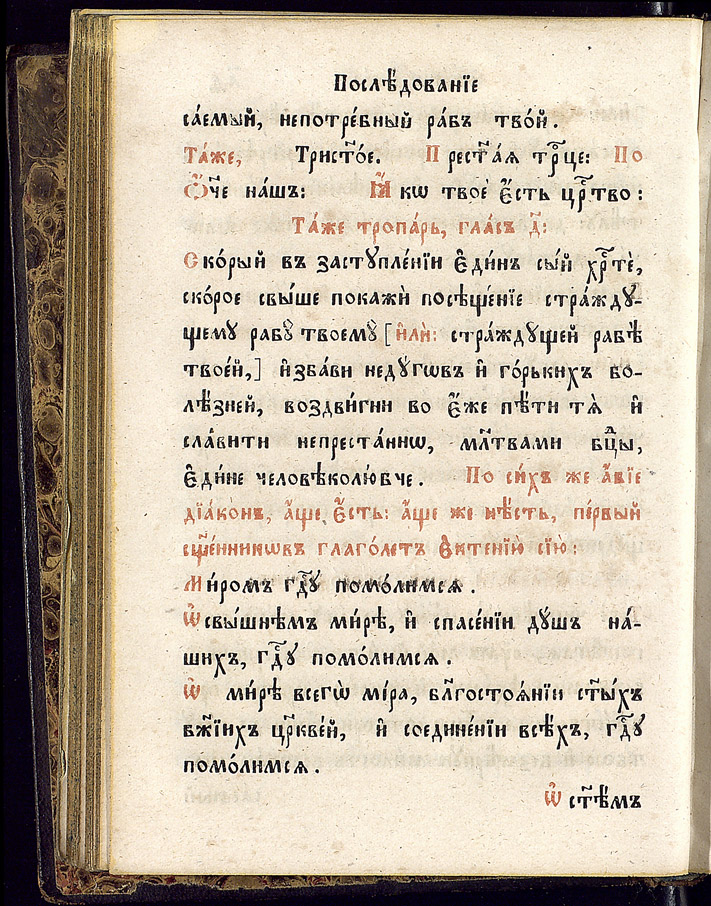 Послѣ́дованїе
са́емый, непотре́бный ра́бъ тво́й.
Та́же, Трист҃о́е. Прест҃а́ѧ трⷪ҇це: По
Ѻ҆́ч҃е на́шъ: Ꙗ҆́кѡ твоѐ є҆́сть црⷭ҇тво:
Та́же тропа́рь, гла́съ д҃:
Ско́рый въ застꙋпле́нїи є҆ди́нъ сы́й хрⷭ҇тѐ,
ско́рое свы́ше покажѝ посѣще́нїе стра́ждꙋ-
щемꙋ рабꙋ̀ твоемꙋ̀ [и҆лѝ: стра́ждꙋщей рабѣ̀
твое́й,] и҆зба́ви недꙋ́гѡвъ и҆ го́рькихъ бо-
лѣ́зней, воздви́гни во є҆́же пѣ́ти тѧ̀ и҆
сла́вити непреста́ннѡ, мл҃твами бцⷣы,
є҆ди́не человѣколю́бче. По си́хъ же а҆́бїе
дїа́конъ, а҆́ще є҆́сть: а҆́ще же нѣ́сть, пе́рвый
сщ҃е́нникѡвъ глаго́летъ є҆ктенїю̀ сїю̀:
Ми́ромъ гдⷭ҇ꙋ помо́лимсѧ.
Ѡ҆ свы́шнѣмъ ми́рѣ, и҆ спасе́нїи дꙋ́шъ на́-
шихъ, гдⷭ҇ꙋ помо́лимсѧ.
Ѡ҆ ми́рѣ всегѡ̀ мі́ра, бл҃госто́ѧнїи ст҃ы́хъ
бж҃їихъ цр҃кве́й, и҆ соедине́нїи всѣ́хъ, гдⷭ҇ꙋ
помо́лимсѧ.
Ѡ҆ ст҃ѣ́мъ